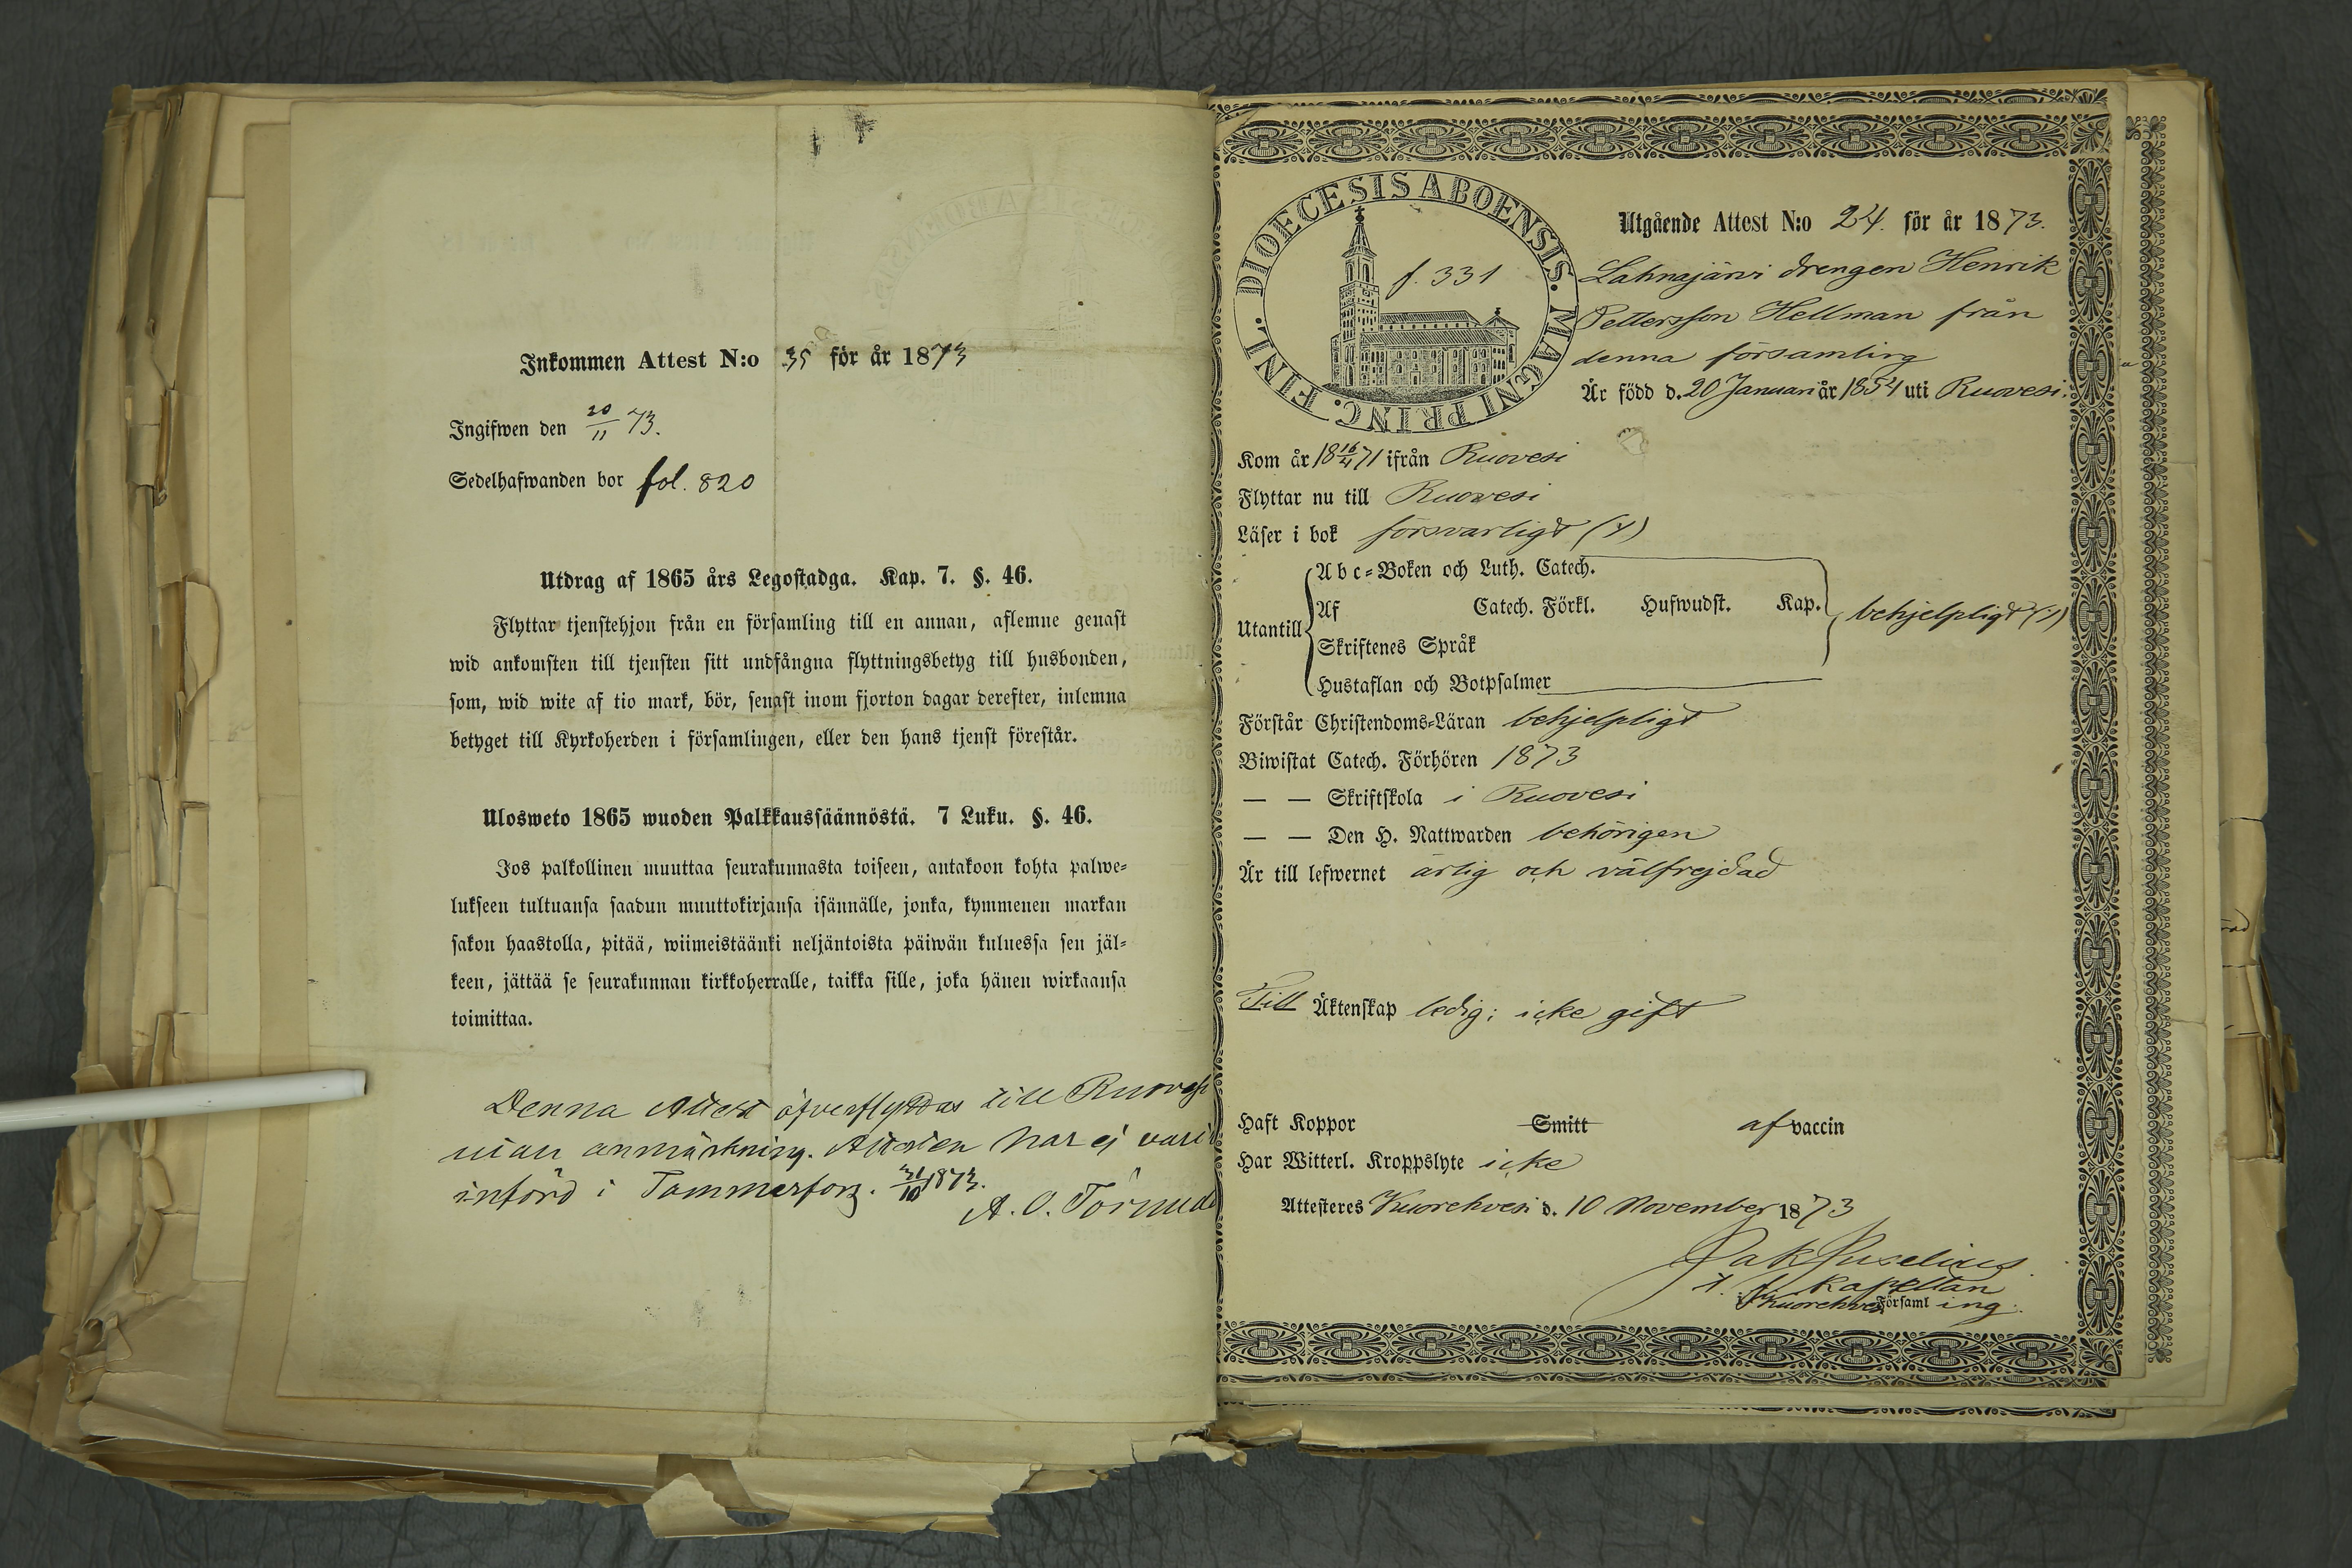 Inkommen Attest N:o 35 för år 1873
Ingifwen den 20/11 73.
Sedelhafwanden bor fol. 820
Utdrag af 1865 års Legostadga. Kap. 7. §. 46.
Flyttar tjenstehjon från en församling till en annan, aflemne genast
wid ankomsten till tjensten sitt undfångna flyttningsbetyg till husbonden,
som, wid wite af tio mark, bör, senast inom fjorton dagar derefter, inlemna
betyget till Kyrkoherden i församlingen, eller den hans tjenst förestår.
Ulosweto 1865 wuoden Palkkaussäännöstä. 7 Luku. §. 46.
Jos palkollinen muuttaa seurakunnasta toiseen, antakoon kohta palwe-
lukseen tultuansa saadun muuttokirjansa isännälle, jonka, kymmenen markan
sakon haastolla, pitää, wiimeistäänki neljäntoista päiwän kuluessa sen jäl-
keen, jättää se seurakunnan kirkkoherralle, taikka sille, joka hänen wirkaansa
toimittaa.
Denna Attest öfverflyttas till Ruovesi
utan anmärkning. Attesten har ej varit
införd i Tammerfors. 31/10 1873.
A. O. Törnudd
DIOECESIS ABOENSIS. MAGNI PRINC. FINL.
f. 331
Utgående Attest N:o 24. för år 1873.
Lahnajärvi drengen Henrik
Pettersson Hellman från
denna församling
Är född d. 20 Januari år 1854 uti Ruovesi.
Kom år 18 16/4 71 ifrån Ruovesi
Flyttar nu till Ruovesi
Läser i bok försvarligt
Utantill
Abc-Boken och Luth. Catech.
Af Catech. Förkl. Hufwudst. Kap.
behjelpligt
Skriftenes Språk
Hustaflan och Botpsalmer
Förstår Christendoms-Läran behjelpligt
Biwistat Catech. Förhören 1873
— — Skriftskola i Ruovesi
— — Den H. Nattwarden behörigen
Är till lefwernet ärlig och välfrejdad
Till Äktenskap ledig; icke gift
Haft Koppor Smitt af vaccin
Har Witterl. Kroppslyte icke
Attesteres Kuorehvesi d. 10 November 1873
Kapellan
Kuorehvesi Församling.